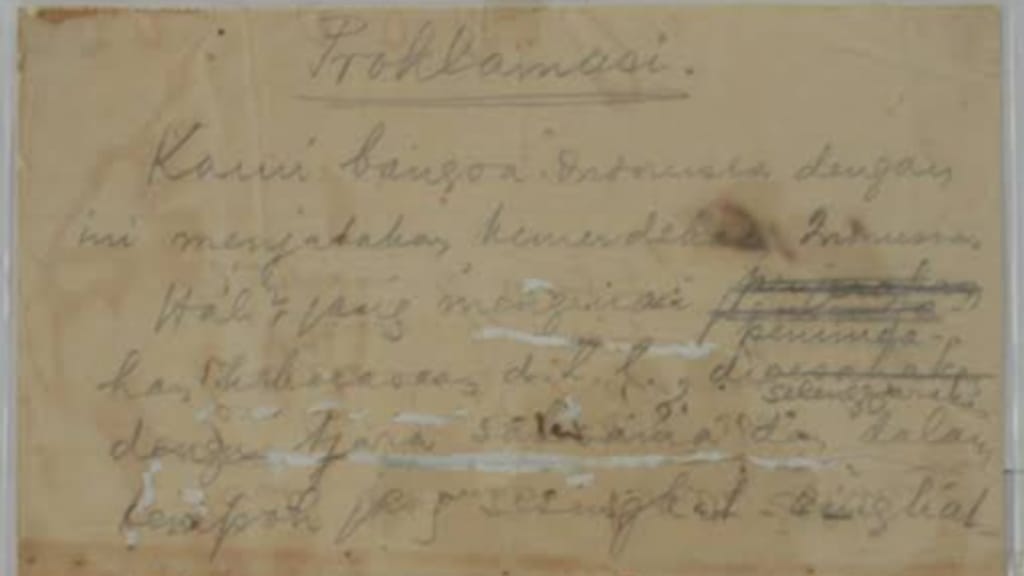 Proklamasi.
Kami bangsa Indonesia dengan
ini menjatakan kemerdekaan Indonesia.
Hal² jang mengenai
peminda-
han kekoeasaan d.l.l., di
selenggarakan
dengan tjara saksama dan dalam
tempoh jang sesingkat-singkatnja